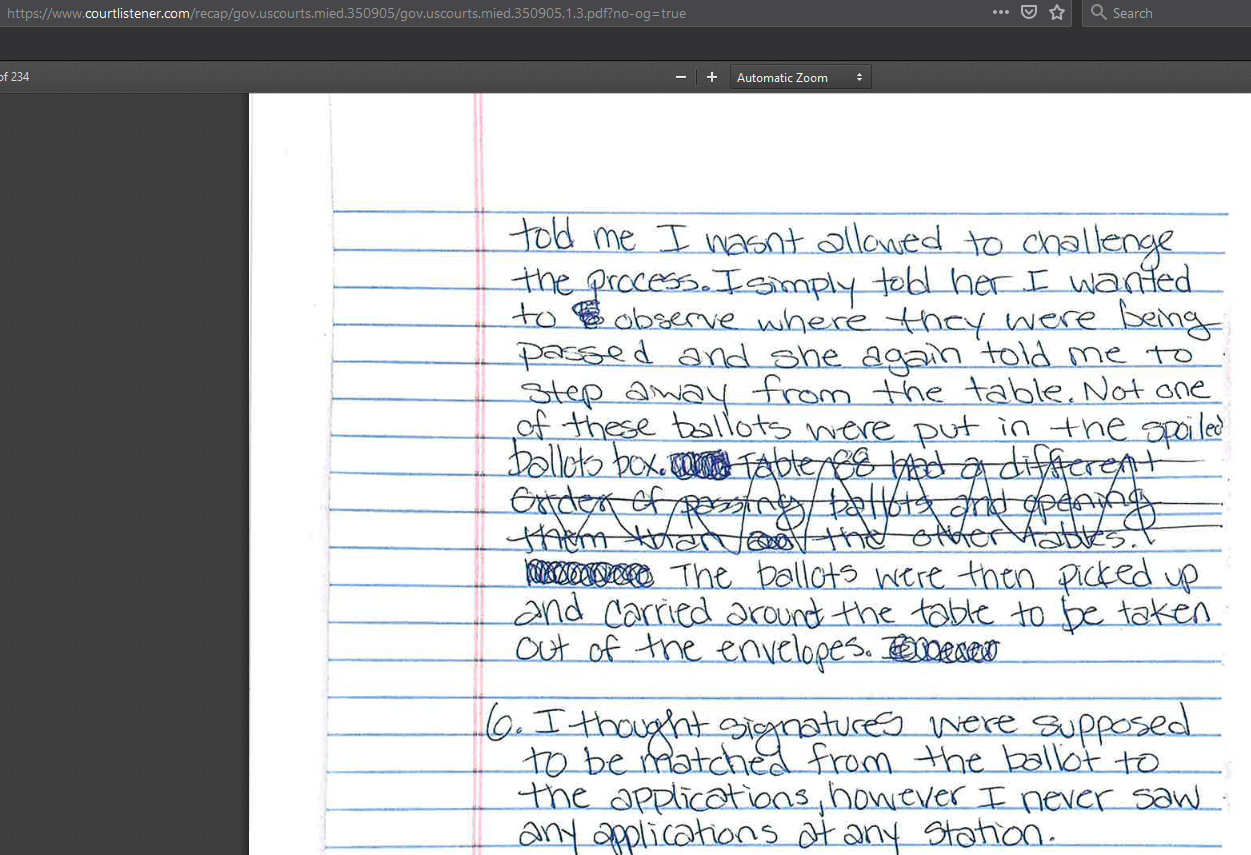 https://www.courtlistener.com/recap/gov.uscourts.mied.350905/gov.uscourts.mied.350905.1.3.pdf?no-og=true
Search
of 234
Automatic Zoom
told me I wasnt allowed to challenge
the process. I simply told her I wanted
to observe where they were being
passed and she again told me to
step away from the table. Not one
of these ballots were put in the spoiled
ballots box. Table 68 had a different
Order of passing ballots and opening
them than the other tables.
The ballots were then picked up
and carried around the table to be taken
out of the envelopes.
6. I thought signatures were supposed
to be matched from the ballot to
the applications, however I never saw
any applications at any station.